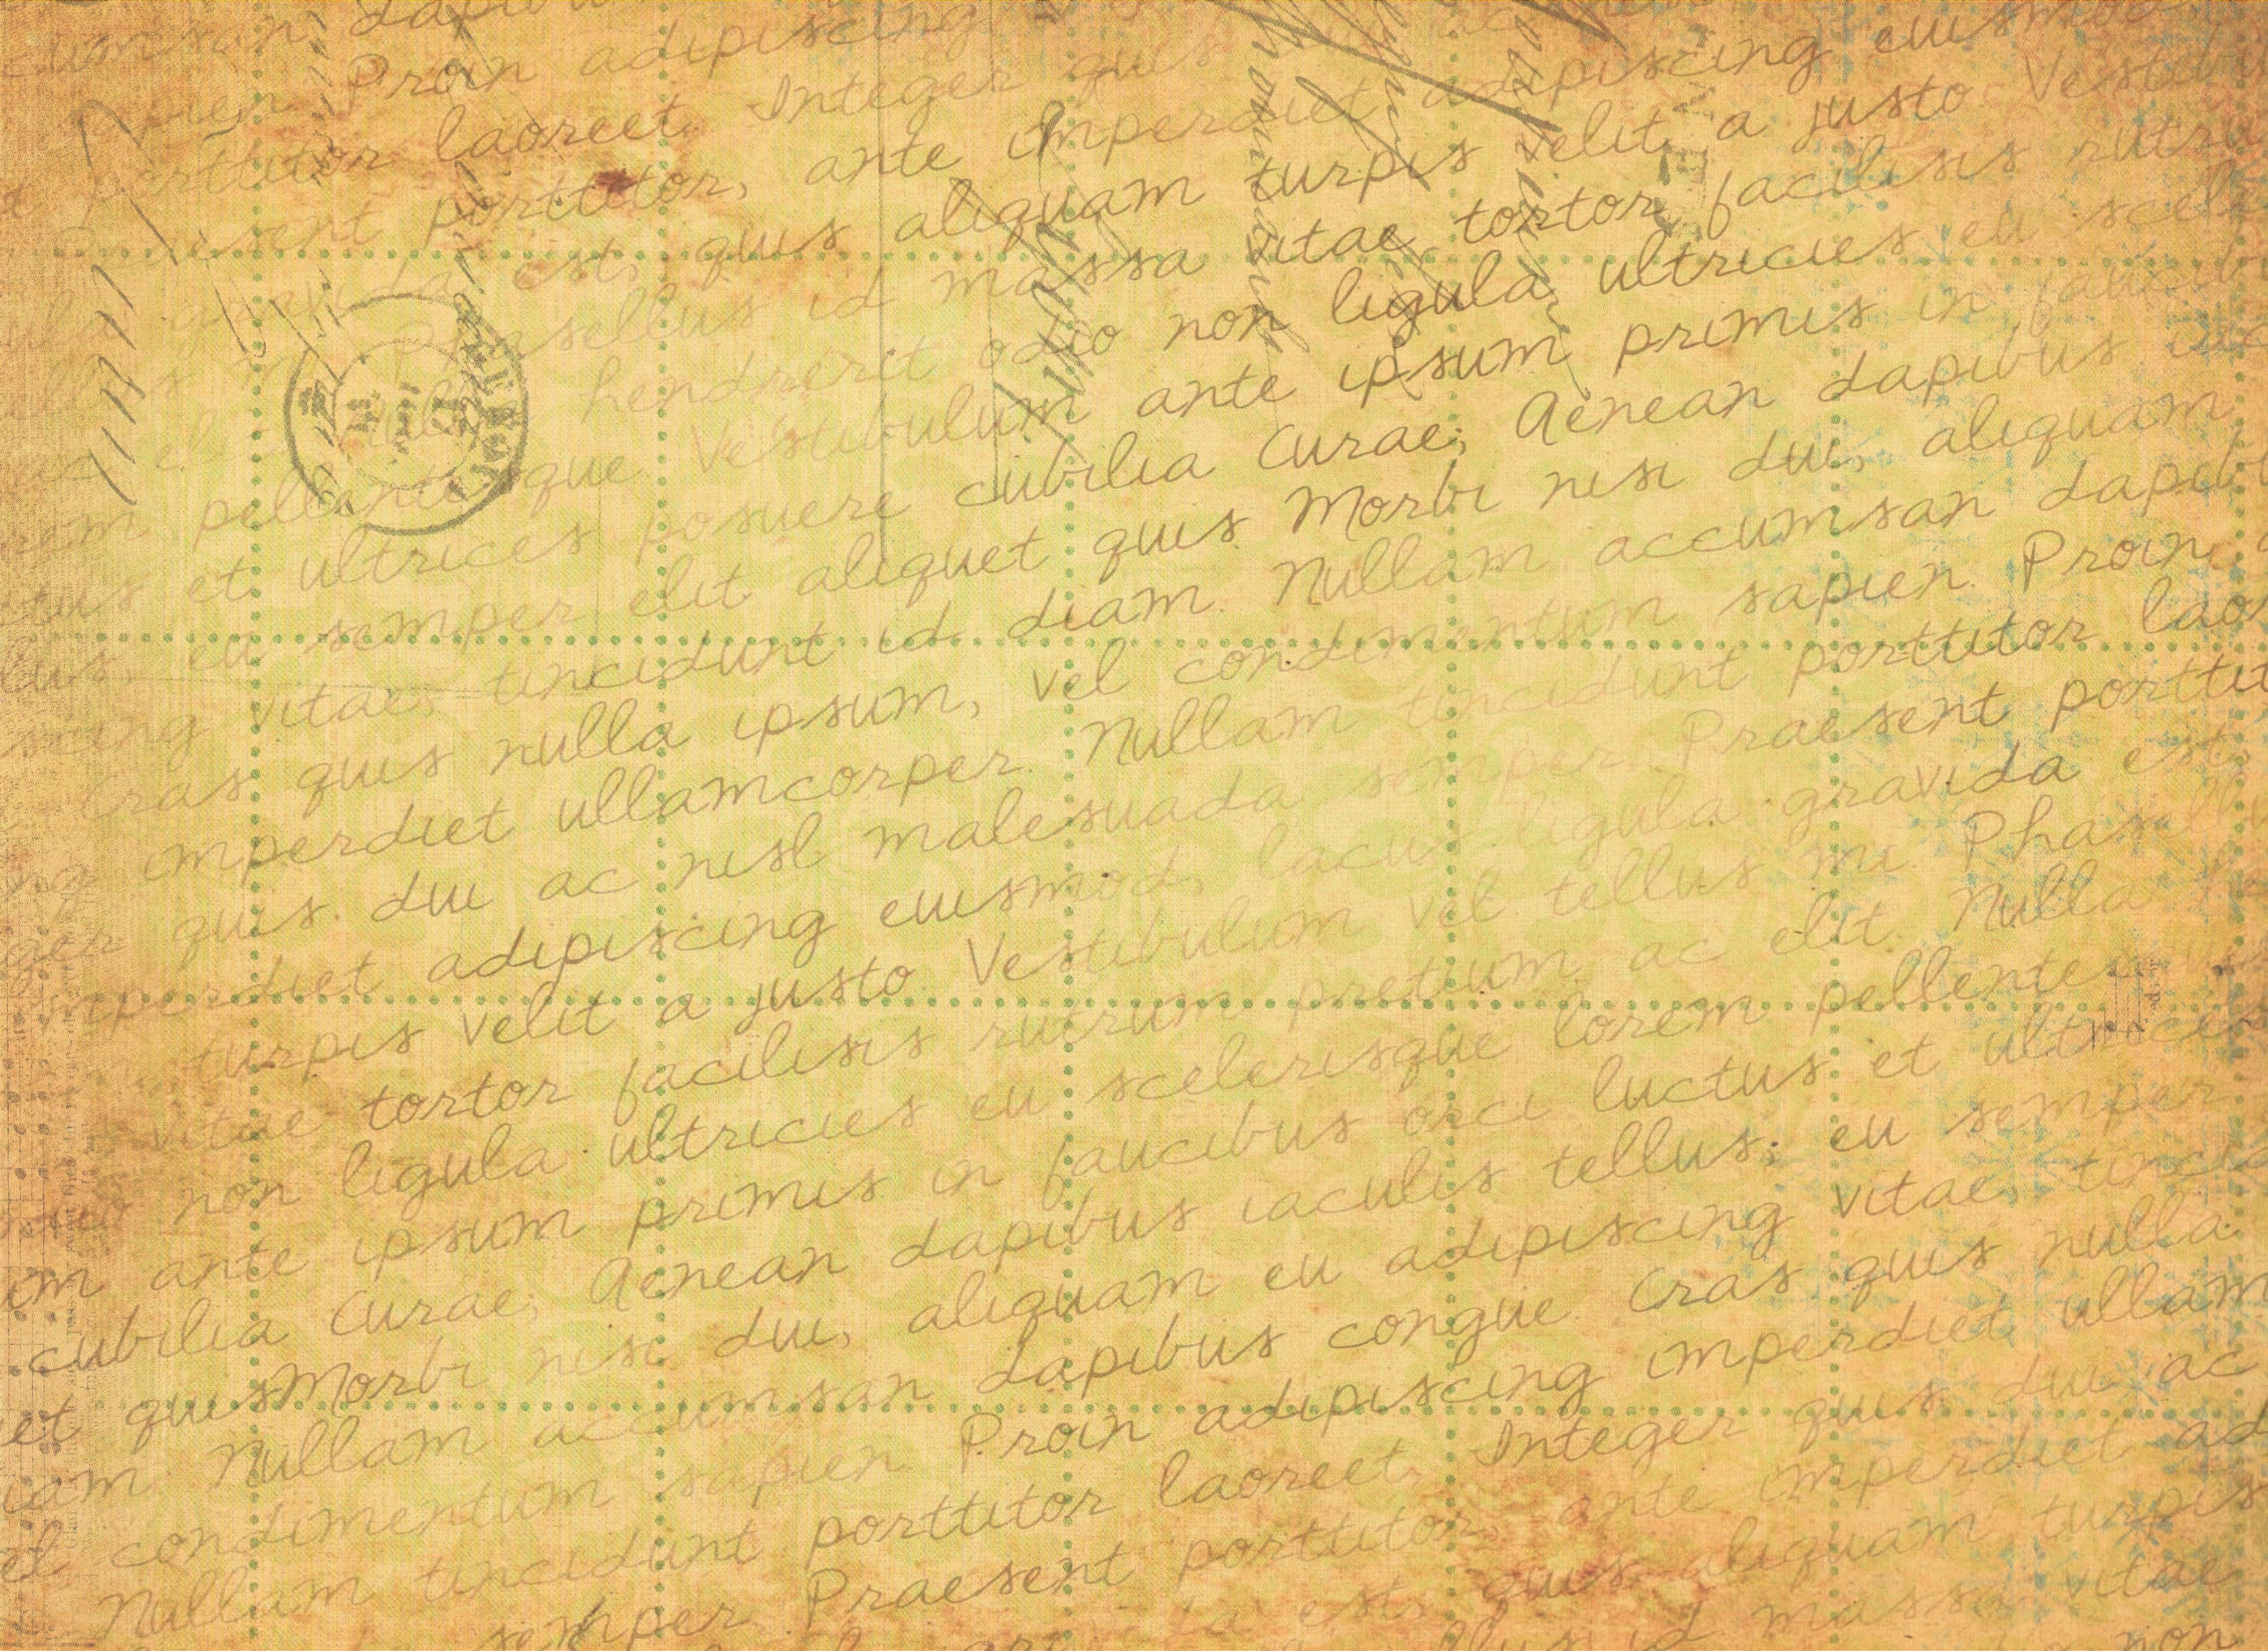 accumsan dapibus
sapien Proin adipiscing
porttitor laoreet. Integer quis
Praesent porttitor, ante imperdiet adipiscing euismod
gravida est, quis aliquam turpis velit a justo. Vestibu
Phasellus id massa vitae tortor facilisis rutru
elit. Nulla hendrerit odio non ligula ultricies eu scele
rem pellentesque. Vestibulum ante ipsum primis in faucib
ctus et ultrices posuere cubilia Curae; Aenean dapibus iac
llus, eu semper elit aliquet quis Morbi nisi dui, aliquam
scing vitae, tincidunt id diam. Nullam accumsan dapib
Cras quis nulla ipsum, vel condimentum sapien. Proin a
ng imperdiet ullamcorper. Nullam tincidunt porttitor laor
ger quis dui ac nisl malesuada semper. Praesent porttit
imperdiet adipiscing euismod, lacus ligula gravida est,
turpis velit a justo. Vestibulum vel tellus mi. Phasell
vitae tortor facilisis rutrum pretium ac elit. Nulla h
odio non ligula ultricies eu scelerisque lorem pellentesque
um ante ipsum primis in faucibus orci luctus et ultrices
cubilia Curae; Aenean dapibus iaculis tellus, eu semper
et quis Morbi nisi dui, aliquam eu adipiscing vitae, tincid
iam. Nullam accumsan dapibus congue. Cras quis nulla
el condimentum sapien. Proin adipiscing imperdiet ullam
Nullam tincidunt porttitor laoreet. Integer quis dui ac
semper. Praesent porttitor, ante imperdiet ad
est, quis aliquam turpis
id massa vitae
non